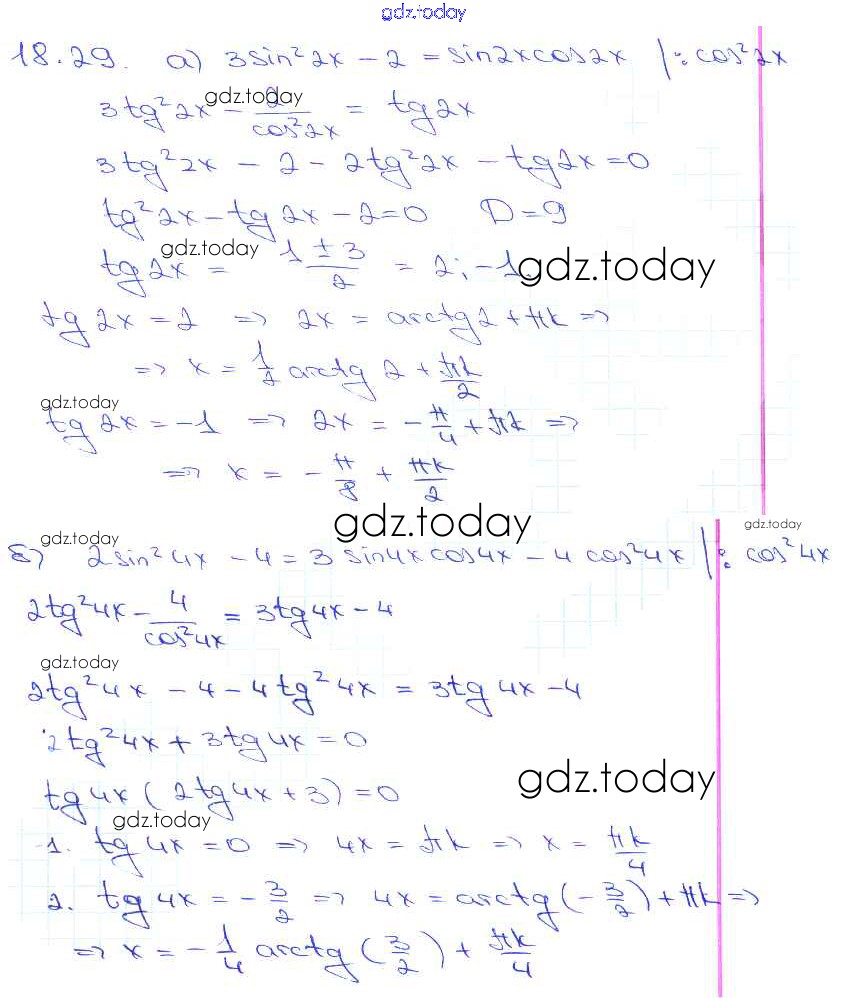 gdz.today
18.29. а) 3sin²2x − 2 = sin2xcos2x |: cos²2x
3tg²2x − 2/cos²2x = tg2x
gdz.today
3tg²2x − 2 − 2tg²2x − tg2x = 0
tg²2x − tg2x − 2 = 0 D = 9
gdz.today
tg2x = (1 ± 3)/2 = 2; −1.
gdz.today
tg2x = 2 => 2x = arctg2 + πk =>
=> x = 1/2 arctg 2 + πk/2
gdz.today
tg2x = −1 => 2x = −π/4 + πk =>
=> x = −π/8 + πk/2
gdz.today
gdz.today
gdz.today
б) 2sin²4x − 4 = 3 sin4x cos4x − 4 cos²4x |: cos²4x
2tg²4x − 4/cos²4x = 3tg4x − 4
gdz.today
2tg²4x − 4 − 4tg²4x = 3tg4x − 4
2tg²4x + 3tg4x = 0
gdz.today
tg4x (2tg4x + 3) = 0
gdz.today
1. tg4x = 0 => 4x = πk => x = πk/4
2. tg4x = −3/2 => 4x = arctg(−3/2) + πk =>
=> x = −1/4 arctg(3/2) + πk/4